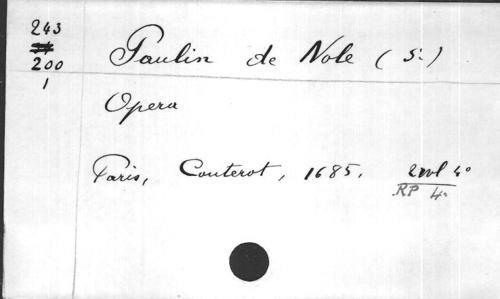 243
200
1
Paulin de Nole (St)
Opera
Paris, Couterot, 1685. 2 vol 4°
RP 4°